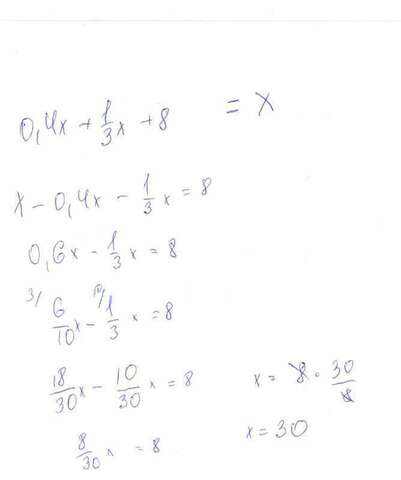 0,4x + 1/3 x + 8 = x
x - 0,4x - 1/3 x = 8
0,6x - 1/3 x = 8
3/ 6/10 x - 10/ 1/3 x = 8
18/30 x - 10/30 x = 8
8/30 x = 8
x = 8 · 30/8
x = 30